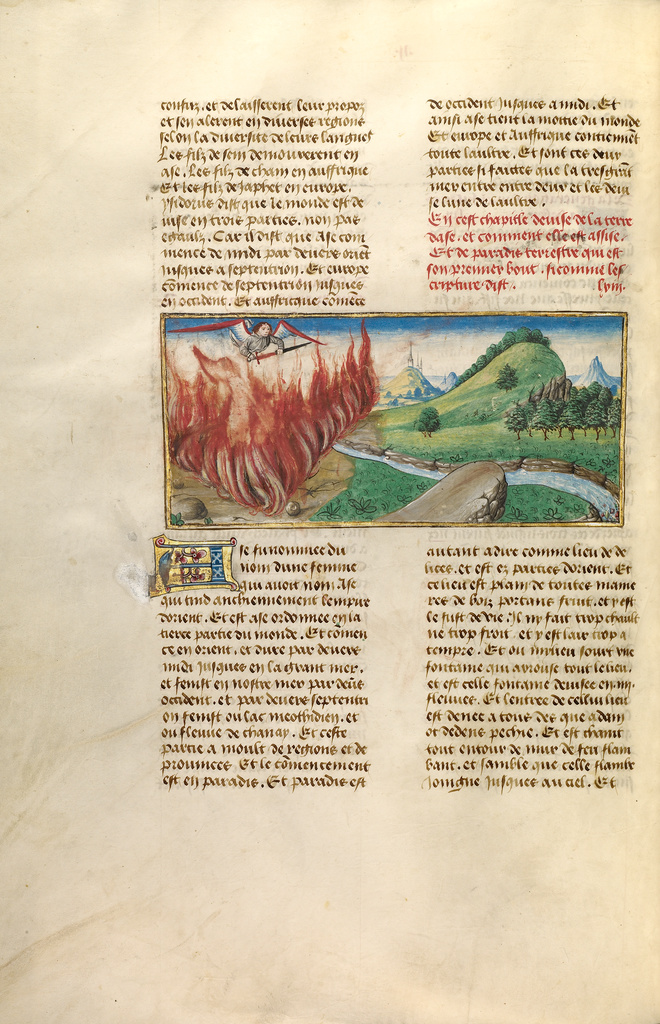 confuz. et delaisserent leur propoz
et sen alerent en diverses regions
selon la diversite de leurs langues
Les filz de sem demourerent en
ase. Les filz de cham en auffrique
Et les filz de Japhet en europe.
ysidorus dist que le monde est de
uise en trois parties. non pas
egaulz. Car il dist que Ase com
mence de midi par devers orient
Jusques a septentrion. Et europe
cōmence de septentrion Jusques
en occident. Et auffricque cōmēce
de occident Jusques a midi. Et
ainsi ase tient la moitie du monde
Et europe et Auffrique contiennēt
toute lautre. Et sont ces deux
parties si faictes que la tresgrāt
mer entre entre deux et les deu
ise lune de lautre.
En cest chapitle devise de la terre
dase. et comment elle est assise.
Et de paradis terrestre qui est
son premier bout. si comme les
cripture dist. lxiii.
Ase surnommee du
nom dune femme
qui avoit nom Ase
qui tind anchiennement lempire
dorient. Et est ase ordonnee en la
tierce partie du monde. Et cōmen
ce en orient. et dure par devers
midi Jusques en la grant mer.
et fenist en nostre mer par deūs
occident. et par devers septentri
on fenist ou lac meothidien. et
ou fleuve de thanay. Et ceste
partie a moult de regions et de
provinces Et le cōmencement
est en paradis. Et paradis est
autant a dire comme lieu de de
lices. et est es parties dorient. Et
ce lieu est plain de toutes manie
res de boiz portans fruit. et y est
le fust de vie. Il ny fait trop chault
ne trop froit. et y est lair trop a
tempre. Et ou milieu sourt une
fontaine qui arouse tout le lieu.
et est celle fontaine devisee en .iiii.
fleuves. Et lentree de cellui lieu
est denee a tous des que adam
ot dedens pechie. Et est chaint
tout entour de mur de feu flam
bant. et samble que celle flambe
Joingne Jusques au ciel. Et